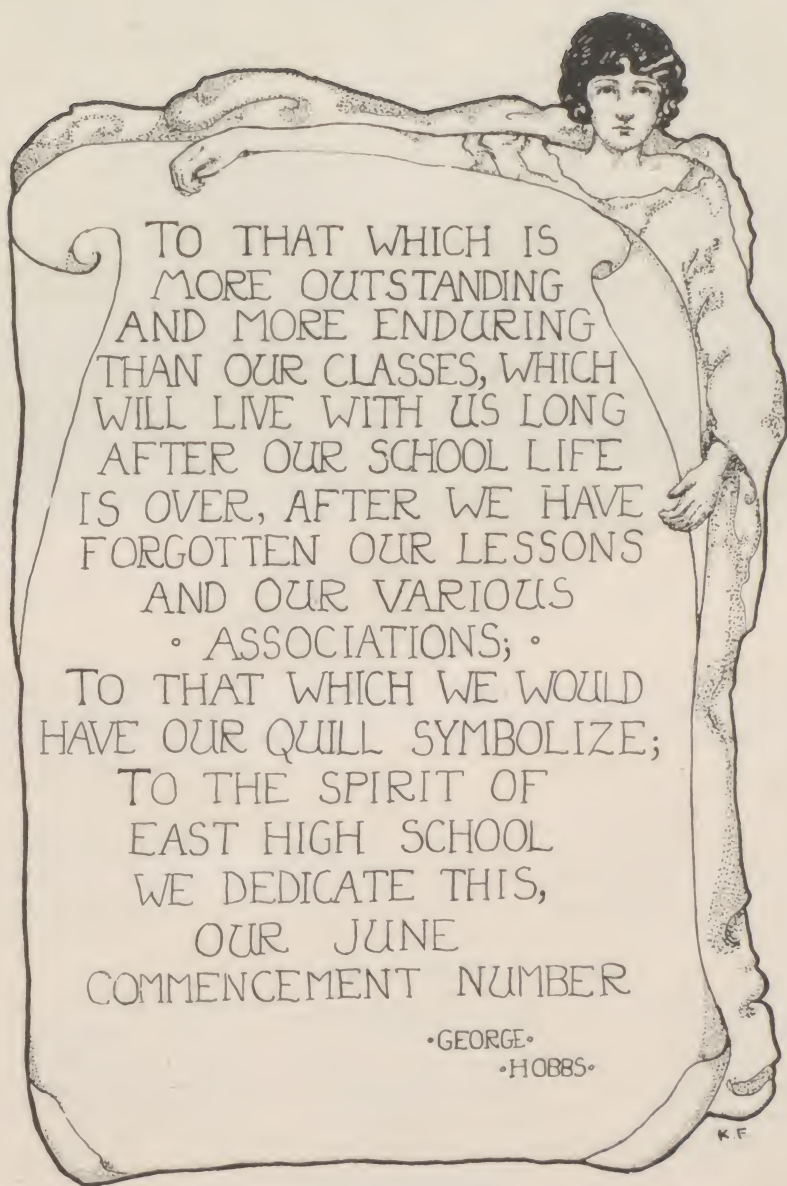 TO THAT WHICH IS
MORE OUTSTANDING
AND MORE ENDURING
THAN OUR CLASSES, WHICH
WILL LIVE WITH US LONG
AFTER OUR SCHOOL LIFE
IS OVER, AFTER WE HAVE
FORGOTTEN OUR LESSONS
AND OUR VARIOUS
• ASSOCIATIONS; •
TO THAT WHICH WE WOULD
HAVE OUR QUILL SYMBOLIZE;
TO THE SPIRIT OF
EAST HIGH SCHOOL
WE DEDICATE THIS,
OUR JUNE
COMMENCEMENT NUMBER
•GEORGE•
•HOBBS•
K.F